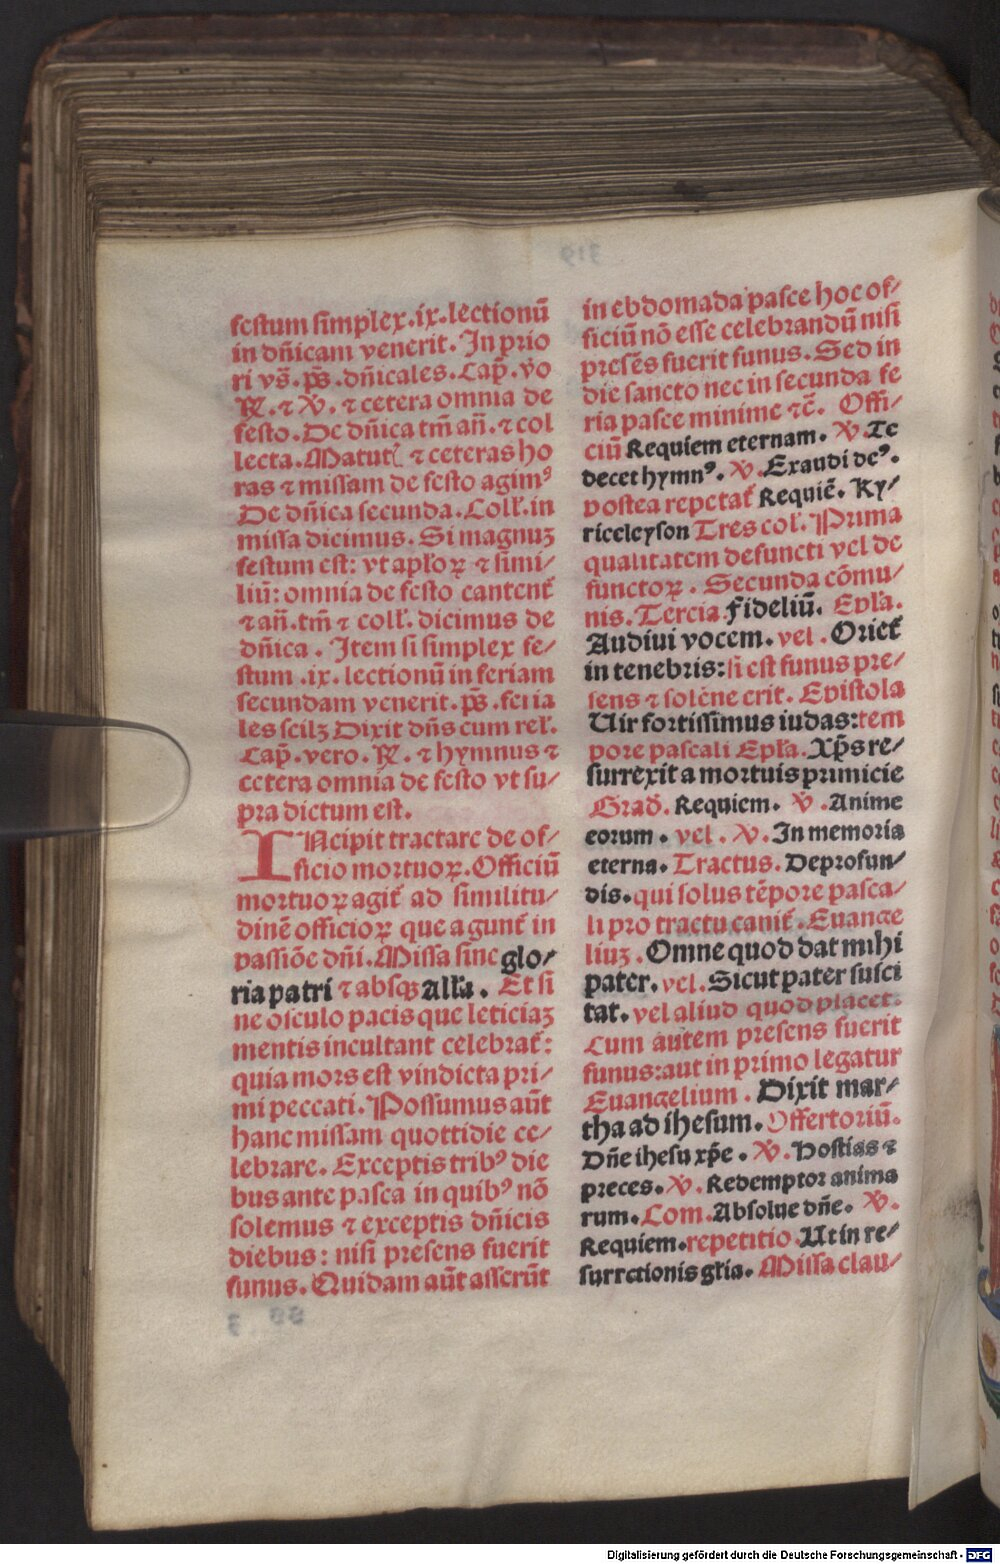 festum simplex.ix.lectionū
in dñicam venerit. In prio
ri vs̃. ps̃. dñicales. Cap̃. v̇o
R̃. ⁊ V̇. ⁊ cetera omnia de
festo. De dñica tm̃ añ. ⁊ col
lecta. Matut̃ ⁊ ceteras ho
ras ⁊ missam de festo agimꝰ
De dñica secunda. Coll̃. in
missa dicimus. Si magnuꝫ
festum est: vt apl̃oꝝ ⁊ simi/
liū: omnia de festo cantent̃
⁊ añ. tm̃ ⁊ coll̃. dicimus de
dñica. Item si simplex fe/
stum .ix. lectionū in feriam
secundam venerit. ps̃. feria
les scilꝫ Dixit dñs cum rel̃.
Cap̃. vero. R̃. ⁊ hymnus ⁊
cetera omnia de festo vt su/
pra dictum est.
INcipit tractare de of/
ficio mortuoꝝ. Officiū
mortuoꝝ agit̃ ad similitu/
dinē officioꝝ que agunt̃ in
passiōe dñi. Missa sine glo/
ria patri ⁊ absqꝫ all̃a. Et si
ne osculo pacis que leticiaꝫ
mentis incultant celebrat̃:
quia mors est vindicta pri/
mi peccati. Possumus aūt
hanc missam quottidie ce/
lebrare. Exceptis tribꝰ die
bus ante pasca in quibꝰ nō
solemus ⁊ exceptis dñicis
diebus: nisi presens fuerit
funus. Quidam aūt asserūt
in ebdomada pasce hoc of/
ficiū nō esse celebrandū nisi
presēs fuerit funus. Sed in
die sancto nec in secunda fe
ria pasce minime ⁊c̃. Offi/
ciū Requiem eternam. V̇. Te
decet hymnꝰ. V̇. Exaudi deꝰ.
postea repetat̃ Requiē. Ky/
rieeleyson Tres col̃. Prima
qualitatem defuncti vel de
functoꝝ. Secunda cōmu/
nis. Tercia Fideliū. Epl̃a.
Audiui vocem. vel. Oriet̃
in tenebris: si est funus pre/
sens ⁊ solēne erit. Epistola
Uir fortissimus iudas: tem
pore pascali Epl̃a. Xp̃s re/
surrexit a mortuis primicie
Grad̃. Requiem. V̇. Anime
eorum. vel. V̇. In memoria
eterna. Tractus. Deprofun/
dis. qui solus tēpore pasca/
li pro tractu canit̃. Euange
liuꝫ. Omne quod dat mihi
pater. vel. Sicut pater susci
tat. vel aliud quod placet.
Cum autem presens fuerit
funus: aut in primo legatur
Euangelium. Dixit mar/
tha ad ihesum. Offertoriū.
Dñe ihesu xp̃e. V̇. Hostias ⁊
preces. V̇. Redemptor anima
rum. Com. Absolue dñe. V̇.
Requiem. repetitio. Ut in re/
surrctionis gl̃ia. Missa clau/
Digitalisierung gefördert durch die Deutsche Forschungsgemeinschaft - DFG